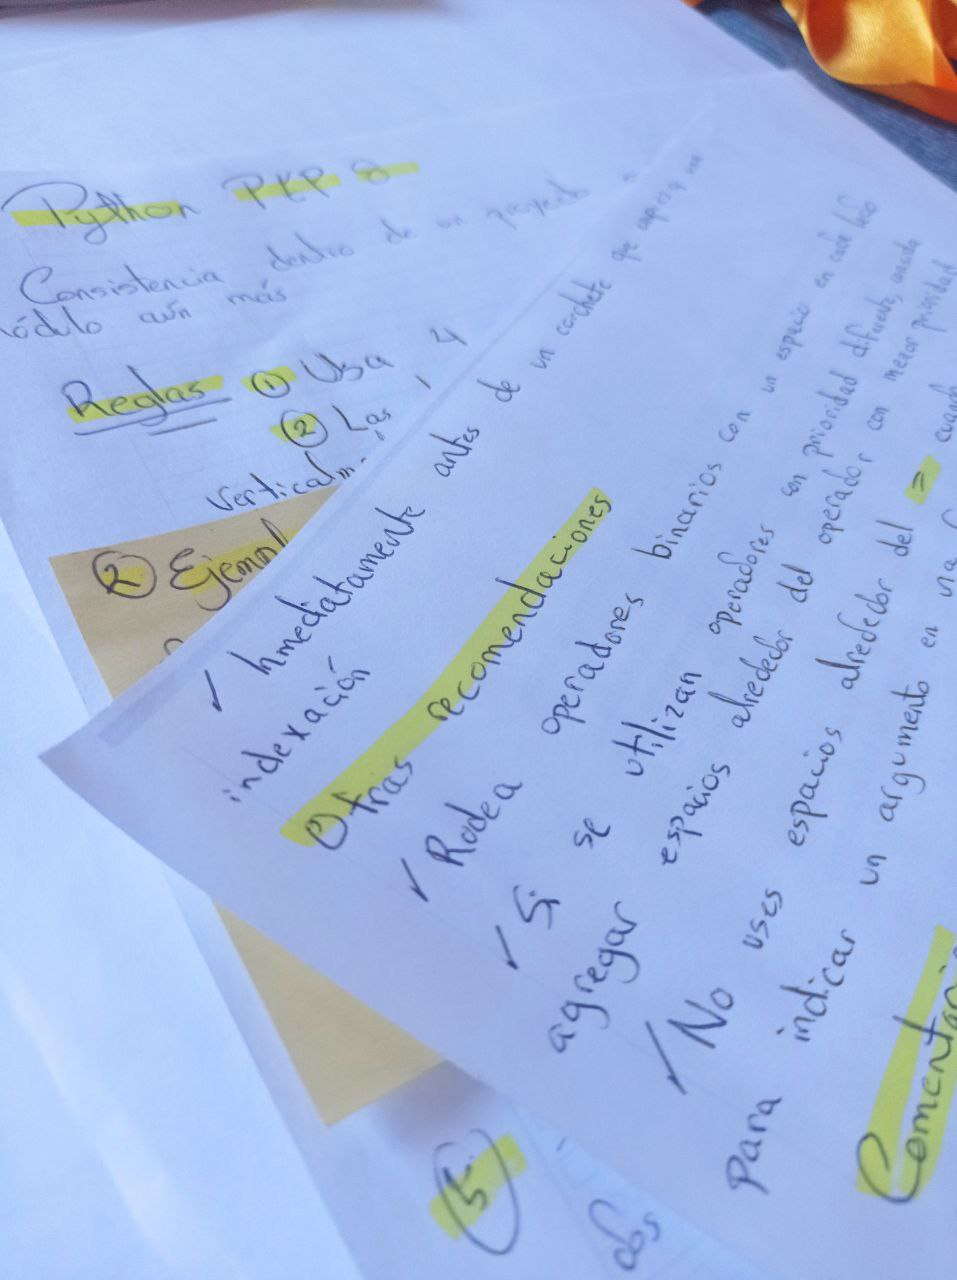 Python PEP 8
Consistencia dentro de un proyecto
módulo aún más
Reglas ① Usa 4
② Las
Vertical
② Ejempl
✓ Inmediatamente antes de un corchete que empieza una
indexación
Otras recomendaciones
✓ Rodea operadores binarios con un espacio en cada lado
✓ Si se utilizan operadores con prioridad diferente,
agregar espacios alrededor del operador con menor prioridad
✓ No uses espacios alrededor del = cuando
para indicar un argumento en una
Comentari
⑤